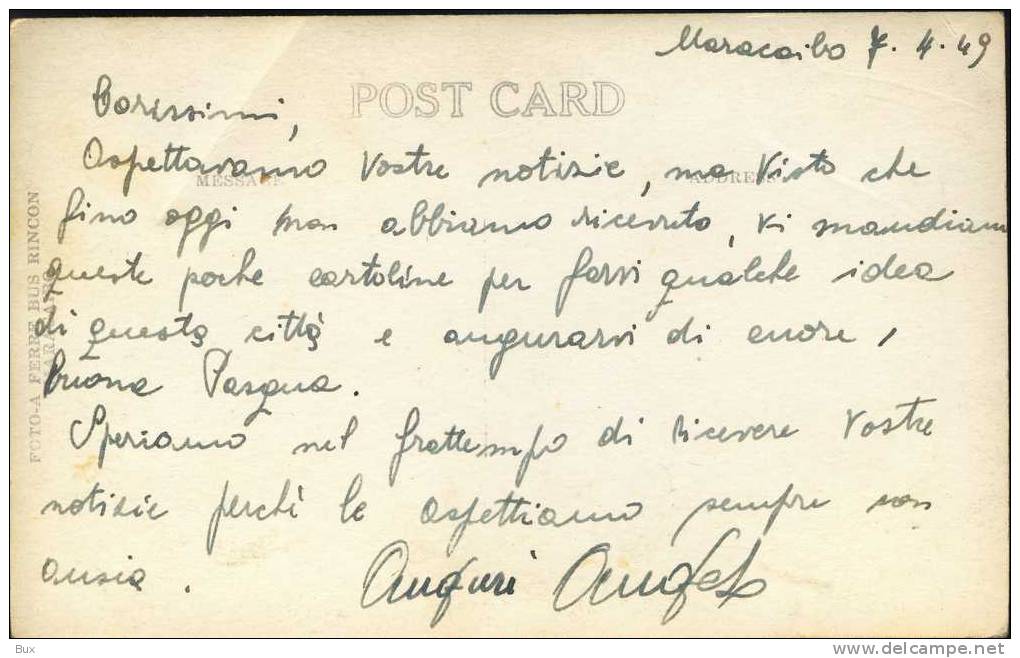 Maracaibo 7.4.49
POST CARD
Carissimi,
Aspettavamo vostre notizie, ma visto che
MESSAGE
ADDRESS
fino oggi non abbiamo ricevuto, vi mandiamo
queste poche cartoline per farvi qualche idea
di questa città e augurarvi di cuore,
buona Pasqua.
Speriamo nel frattempo di ricevere vostre
notizie perchè le aspettiamo sempre con
ansia. Auguri Angelo
FOTO-A FERRE BUS RINCON
Bux
www.delcampe.net